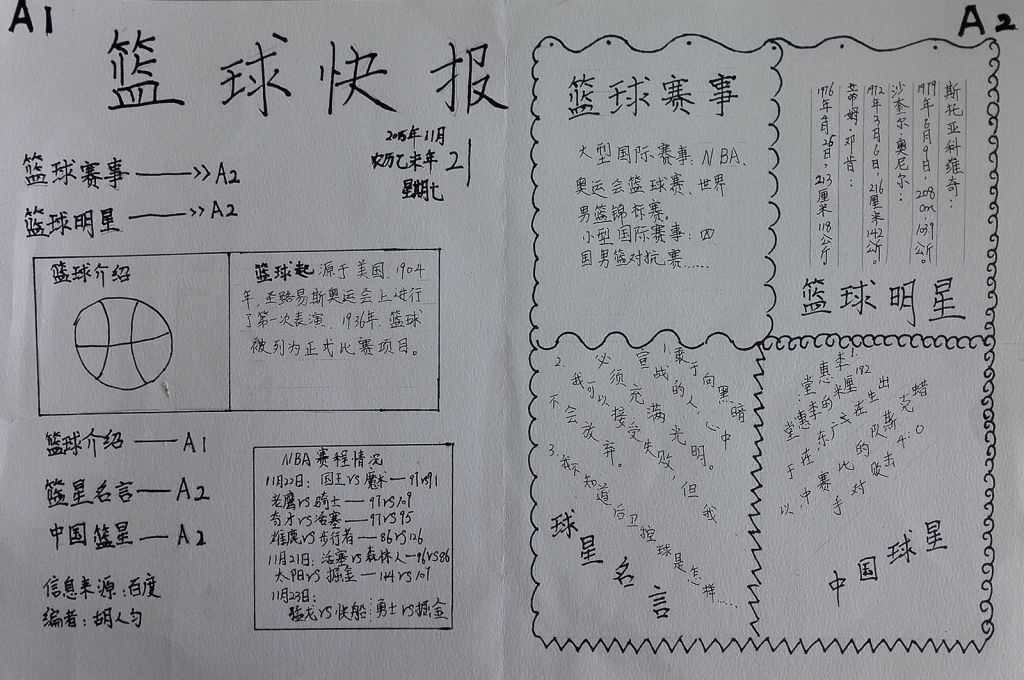 A1
篮球快报
2015年11月
农历乙未年
星期七
21
篮球赛事——>>A2
篮球明星——>>A2
篮球介绍
篮球起源于美国，1904
年，圣路易斯奥运会上进行
了第一次表演，1936年，篮球
被列为正式比赛项目。
篮球介绍——A1
篮星名言——A2
中国篮星——A2
信息来源：百度
NBA赛程情况
11月22日：国王VS魔术—97VS91
老鹰VS骑士—97VS109
奇才VS活塞—97VS95
雄鹿VS步行者—86VS126
11月21日：活塞VS森林人—96VS86
太阳VS掘金—114VS107
11月23日：
猛龙VS快船 勇士VS掘金
A2
篮球赛事
大型国际赛事：NBA、
奥运会篮球赛、世界
男篮锦标赛。
小型国际赛事：四
国男篮对抗赛……
斯托亚科维奇：
1979年6月9日，208cm，109公斤。
沙奎尔·奥尼尔：
1972年3月6日，216厘米142公斤。
蒂姆·邓肯：
篮球明星
1.敢于向黑暗
宣战的人，心中
必须充满光明。
2.我可以接受失败，但我
不会放弃。
3.我不知道后卫控球是怎样……
球星名言
中国球星